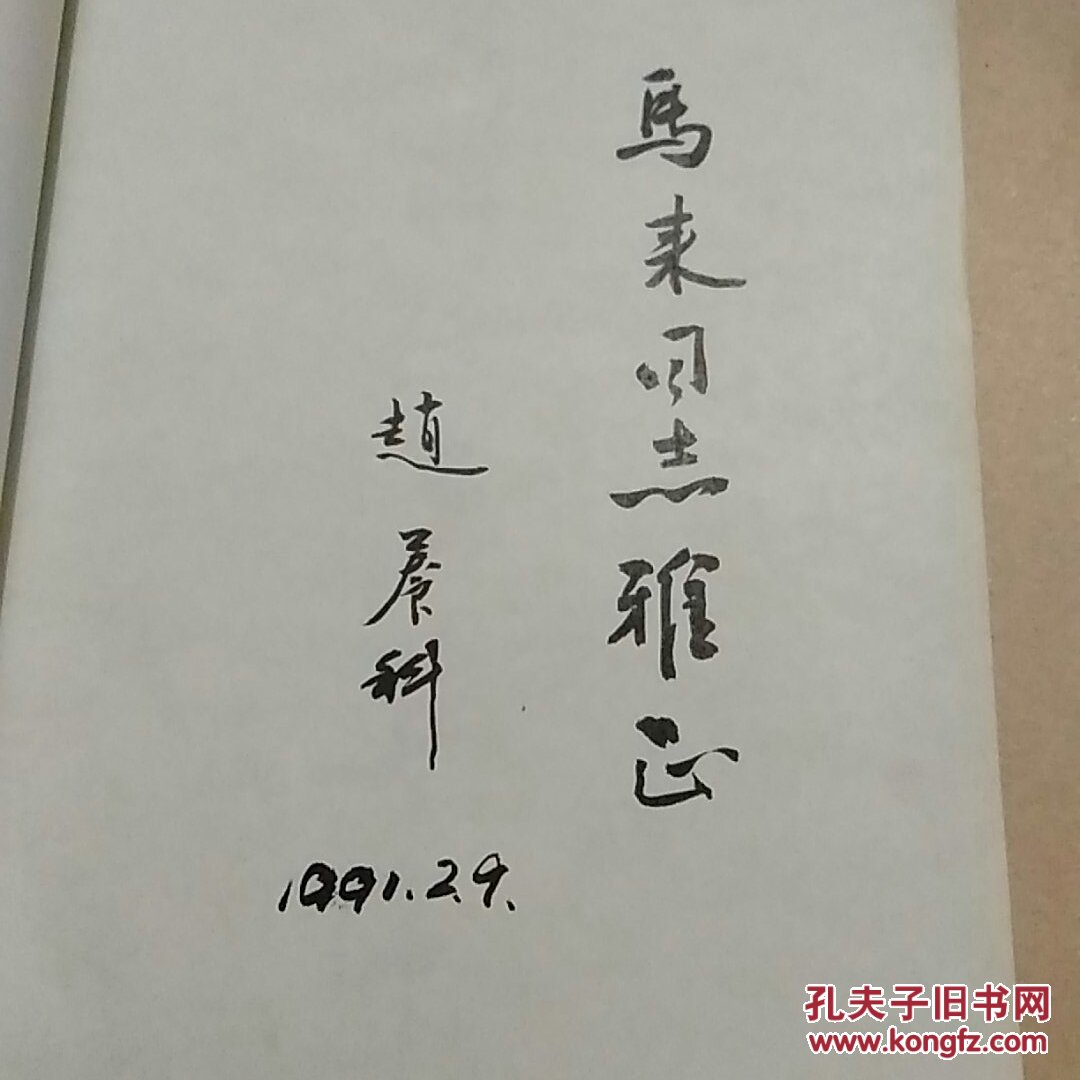 馬来同志雅正
趙養科
1991.2.9.
孔夫子旧书网
www.kongfz.com